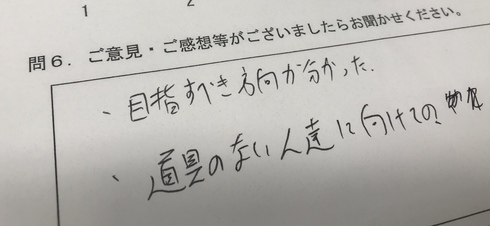 1 2
問6．ご意見・ご感想等がございましたらお聞かせください。
、目指すべき方向が分かった.
、道具のない人達に向けての、